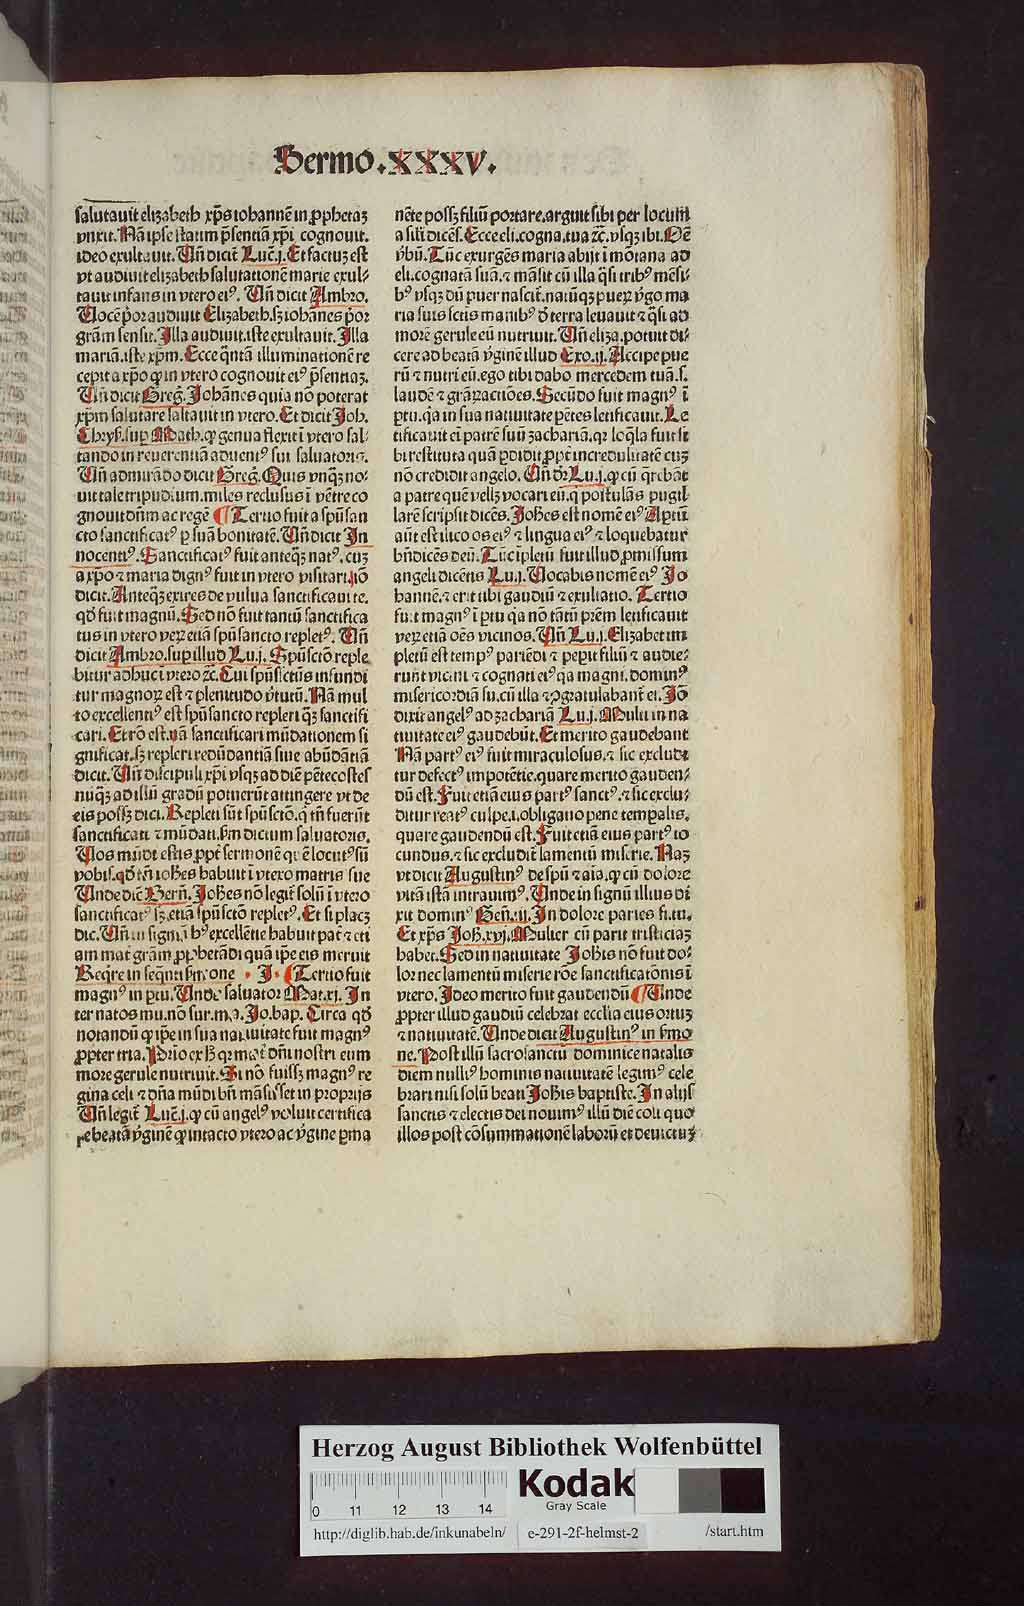 Sermo .XXXV.
salutauit elizabeth xp̄s iohannē in ꝓphetaz
vnxit. Nā ipse statum p̄sentiā xp̄i cognouit.
ideo exultauit. Uñ dicit Luc̄.j. Et factuz est
vt audiuit elizabeth salutationē marie exul⸗
tauit infans in vtero eiꝰ. Uñ dicit Ambro.
Uocē p̄or audiuit Elizabeth. sz iohānes p̄or
gr̄am sensit. Illa audiuit. iste exultauit. Illa
mariā. iste xp̄m. Ecce q̄ntā illuminationē re
cepit a xp̄o ꝙ in vtero cognouit eiꝰ p̄sentiaz.
Uñ dicit Greḡ. Johānes quia nō poterat
xp̄m salutare saltauit in vtero. Et dicit Joh.
Chrys̄. suꝑ Math. ꝙ genua flexit ī vtero sal⸗
tando in reuerentiā aduentꝰ sui saluatoris.
Uñ admirādo dicit Greḡ. Quis vnq̄z no⸗
uit tale tripudium. miles reclusus ī vētre co
gnouit dñm ac regē ¶ Tertio fuit a spū san
cto sanctificatꝰ ꝑ suā bonitatē. Uñ dicit In
nocentiꝰ. Sanctificatꝰ fuit anteq̄z natꝰ. cuz
a xp̄o ⁊ maria dignꝰ fuit in vtero visitari. iō
dicit. Anteq̄z exires de vulua sanctificaui te.
qd̄ fuit magnū. Sed nō fuit tantū sanctifica
tus in vtero veꝝ etiā spū sancto repletꝰ. Uñ
dicit Ambro. suꝑ illud Lu.j. Spū sctō reple
bitur adhuc ī vtero ⁊c̄. Cui spūs sctūs infundi
tur magnoꝝ est ⁊ plenitudo v̄tutū. Nā mul
to excellentiꝰ est spū sancto repleri q̄z sanctifi
cari. Et rō est. nā sanctificari mūdationem si
gnificat. sz repleri redūdantiā siue abūdātiā
dicit. Uñ discipuli xp̄i vsqz ad diē pētecostes
nūq̄z ad illū gradū potuerūt attingere vt de
eis possz dici. Repleti sūt spū sctō. q̄ tñ fuerūt
sanctificati ⁊ mūdati. s̄m dictum saluatoris.
Uos mūdi estis ꝓpt̄ sermonē quē locutꝰ sū
vobis. qd̄ tñ iohes̄ habuit ī vtero matris sue
Unde dic̄ Bern̄. Johes̄ nō legit̄ solū ī vtero
sanctificatꝰ sz. etiā spū sctō repletꝰ. Et si placz
dic. Uñ in signū hꝰ excellētie habuit pat̄ ⁊ eti
am mat̄ gr̄am ꝓphetādi quā ip̄e eis meruit
Reqre in seq̄nti s̄mone · J · ¶ Tertio fuit
magnꝰ in ꝑtu. Unde saluator Mat.xj. In
ter natos mu. nō sur. ma. Jo. bap. Circa qd̄
notandū ꝙ ip̄e in sua natiuitate fuit magnꝰ
ꝓpter tria. Primo ex h̄ qꝛ mat̄ dñi nostri eum
more gerule nutriuit. Si nō fuissz magnꝰ re
gina celi ⁊ dn̄a mūdi bn̄ māsisset in proprijs
Uñ legit̄ Luc̄.j. ꝙ cū angelꝰ voluit certifica
re beatā v̄ginē ꝙ intacto vtero ac v̄gine ꝑma
nēte possz filiū portare. arguit sibi per locum
a sili dicēs. Ecce eli. cogna. tua ⁊c̄. vsqz ibi. Oē
v̄bū. Tūc exurgēs maria abijt ī mōtana ad
eli. cognatā suā. ⁊ māsit cū illa q̄si tribꝰ mēsi⸗
bꝰ vsqz dū puer nascit̄. natūqz pueꝝ v̄go ma
ria suis sctis manibꝰ d̄ terra leuauit ⁊ q̄si ad
morē gerule eū nutriuit. Uñ eliza. potuit di⸗
cere ad beatā v̄ginē illud Exo.ij. Accipe pue
rū ⁊ nutri eū. ego tibi dabo mercedem tuā. s.
laudē ⁊ gr̄aꝝ actiōes. Secūdo fuit magnꝰ ī
ꝑtu. qa in sua natiuitate ꝑētes letificauit. Le
tificauit ei patrē suū zachariā. qꝛ loq̄la fuit si
bi restituta quā ꝑdidit ꝓpt̄ incredulitatē cuz
nō credidit angelo. Uñ dꝛ Lu.j. ꝙ cū q̄rebāt̄
a patre quē vellz vocari eū. q̄ postulās pugil
larē scripsit dicēs. Johes̄ est nomē eiꝰ Aꝑtū
aūt est ilico os eiꝰ ⁊ lingua eiꝰ ⁊ loquebatur
bn̄dicēs deū. Tūc īpletū fuit illud ꝓmissum
angeli dicētis Lu.j. Uocabis nomē eiꝰ Jo
hannē. ⁊ erit tibi gaudiū ⁊ exultatio. Tertio
fuit magnꝰ ī ꝑtu qa nō tātū p̄rem letificauit
veꝝ etiā oēs vicinos. Uñ Lu.j. Elizabet im
pletū est tempꝰ pariēdi ⁊ peꝑit filiū ⁊ audie⸗
runt vicini ⁊ cognati eiꝰ qa magni. dominꝰ
misericordiā su. cū illa ⁊ ꝯgratulabant̄ ei. Jō
dixit angelꝰ ad zachariā Lu.j. Multi in na
tiuitate eiꝰ gaudebūt. Et merito gaudebant
Nā partꝰ eiꝰ fuit miraculosus. ⁊ sic exclude
tur defectꝰ impotētie. quare merito gauden⸗
dū est. Fuit etiā eius partꝰ sanctꝰ. ⁊ sic exclu⸗
ditur reatꝰ culpe. i. obligatio pene temꝑalis.
quare gaudendū est. Fuit etiā eius partꝰ io
cundus. ⁊ sic excludit̄ lamentū miserie. Naz
vt dicit Augustinꝰ de spū ⁊ aīa. ꝙ cū dolore
vitā istā intrauimꝰ. Unde in signū illius di
xit dominꝰ Gen̄.iij. In dolore paries fi. tu.
Et xp̄s Joh̄.xvj. Mulier cū parit tristiciaz
habet. Sed in natiuitate Johis̄ nō fuit do⸗
lor nec lamentū miserie rōe sanctificatōnis ī
vtero. Ideo merito fuit gaudendū ¶ Unde
ꝓpter illud gaudiū celebrat ecclia eius ortuz
⁊ natiuitatē. Unde dicit Augustinꝰ in s̄mo
ne. Post illū sacrosanctū dominice natalis
diem nulliꝰ hominis natiuitatē legimꝰ cele
brari nisi solū beati Johis̄ baptiste. In alijs
sanctis ⁊ electis dei nouimꝰ illū diē coli quo
illos post cōsummationē laborū et deuictuz
Herzog August Bibliothek Wolfenbüttel
0 11 12 13 14
Kodak
Gray Scale
http://diglib.hab.de/inkunabeln/ e-291-2f-helmst-2 /start.htm